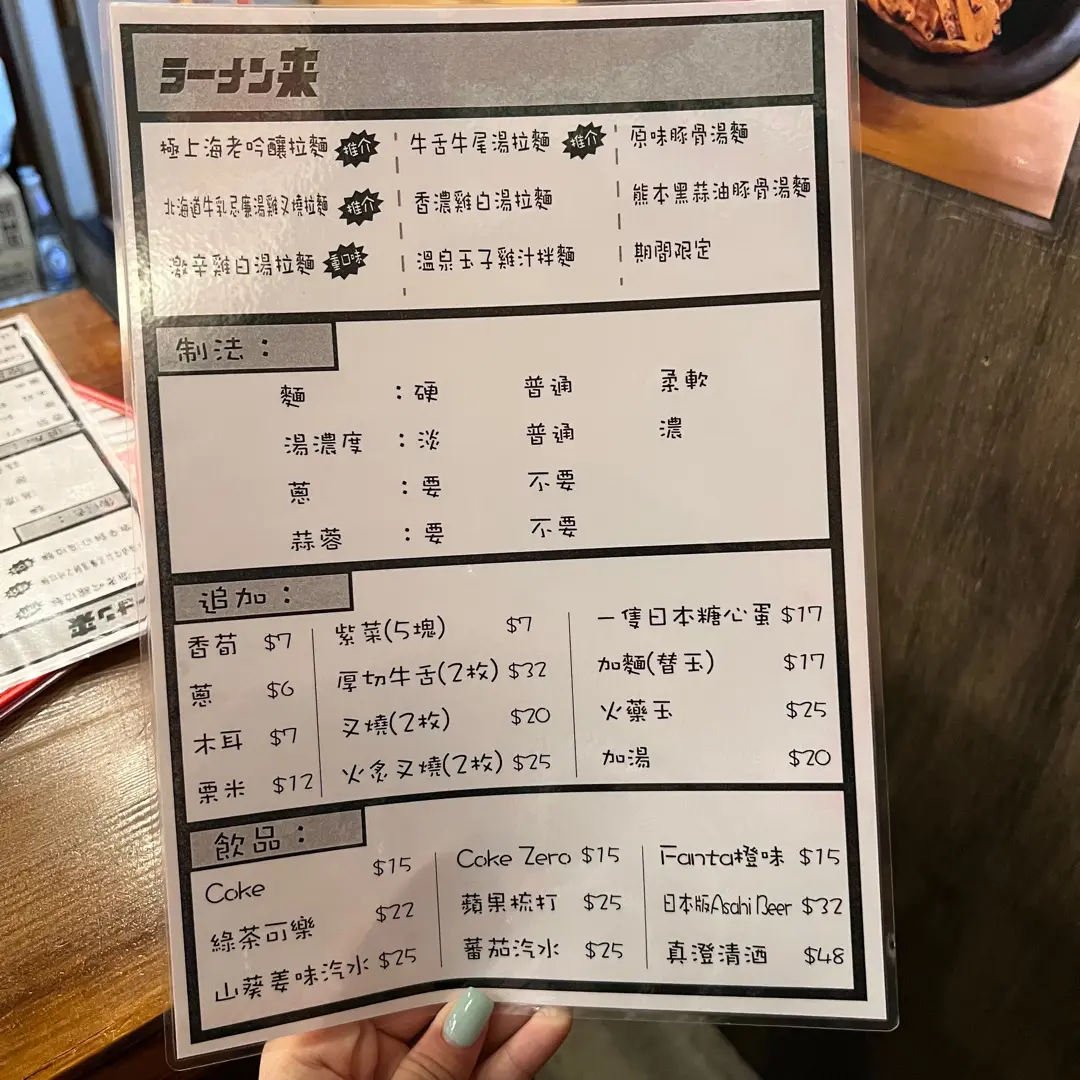 ラーメン来
極上海老吟釀拉麵 推介
北海道牛乳忌廉湯雞叉燒拉麵 推介
激辛雞白湯拉麵 重口味
牛舌牛尾湯拉麵 推介
香濃雞白湯拉麵
溫泉玉子雞汁拌麵
原味豚骨湯麵
熊本黑蒜油豚骨湯麵
期間限定
制法：
麵 ：硬 普通 柔軟
湯濃度 ：淡 普通 濃
蔥 ：要 不要
蒜蓉 ：要 不要
追加：
香荀 $7
蔥 $6
木耳 $7
栗米 $12
紫菜(5塊) $7
厚切牛舌(2枚) $32
叉燒(2枚) $20
火炙叉燒(2枚) $25
一隻日本糖心蛋 $17
加麵(替玉) $17
火藥玉 $25
加湯 $20
飲品：
Coke $15
綠茶可樂 $22
山葵姜味汽水 $25
Coke Zero $15
蘋果梳打 $25
蕃茄汽水 $25
Fanta橙味 $15
日本版Asahi Beer $32
真澄清酒 $48